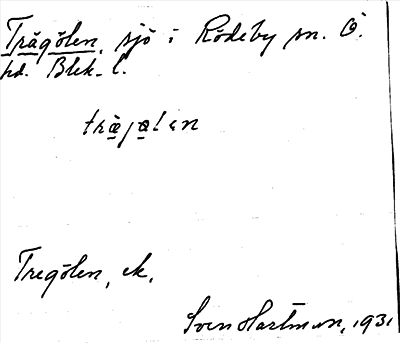 Trågölen, sjö i Rödeby sn. Ö.
hd. Blek. l.
Tregölen, ek.
Sven Hartman, 1931